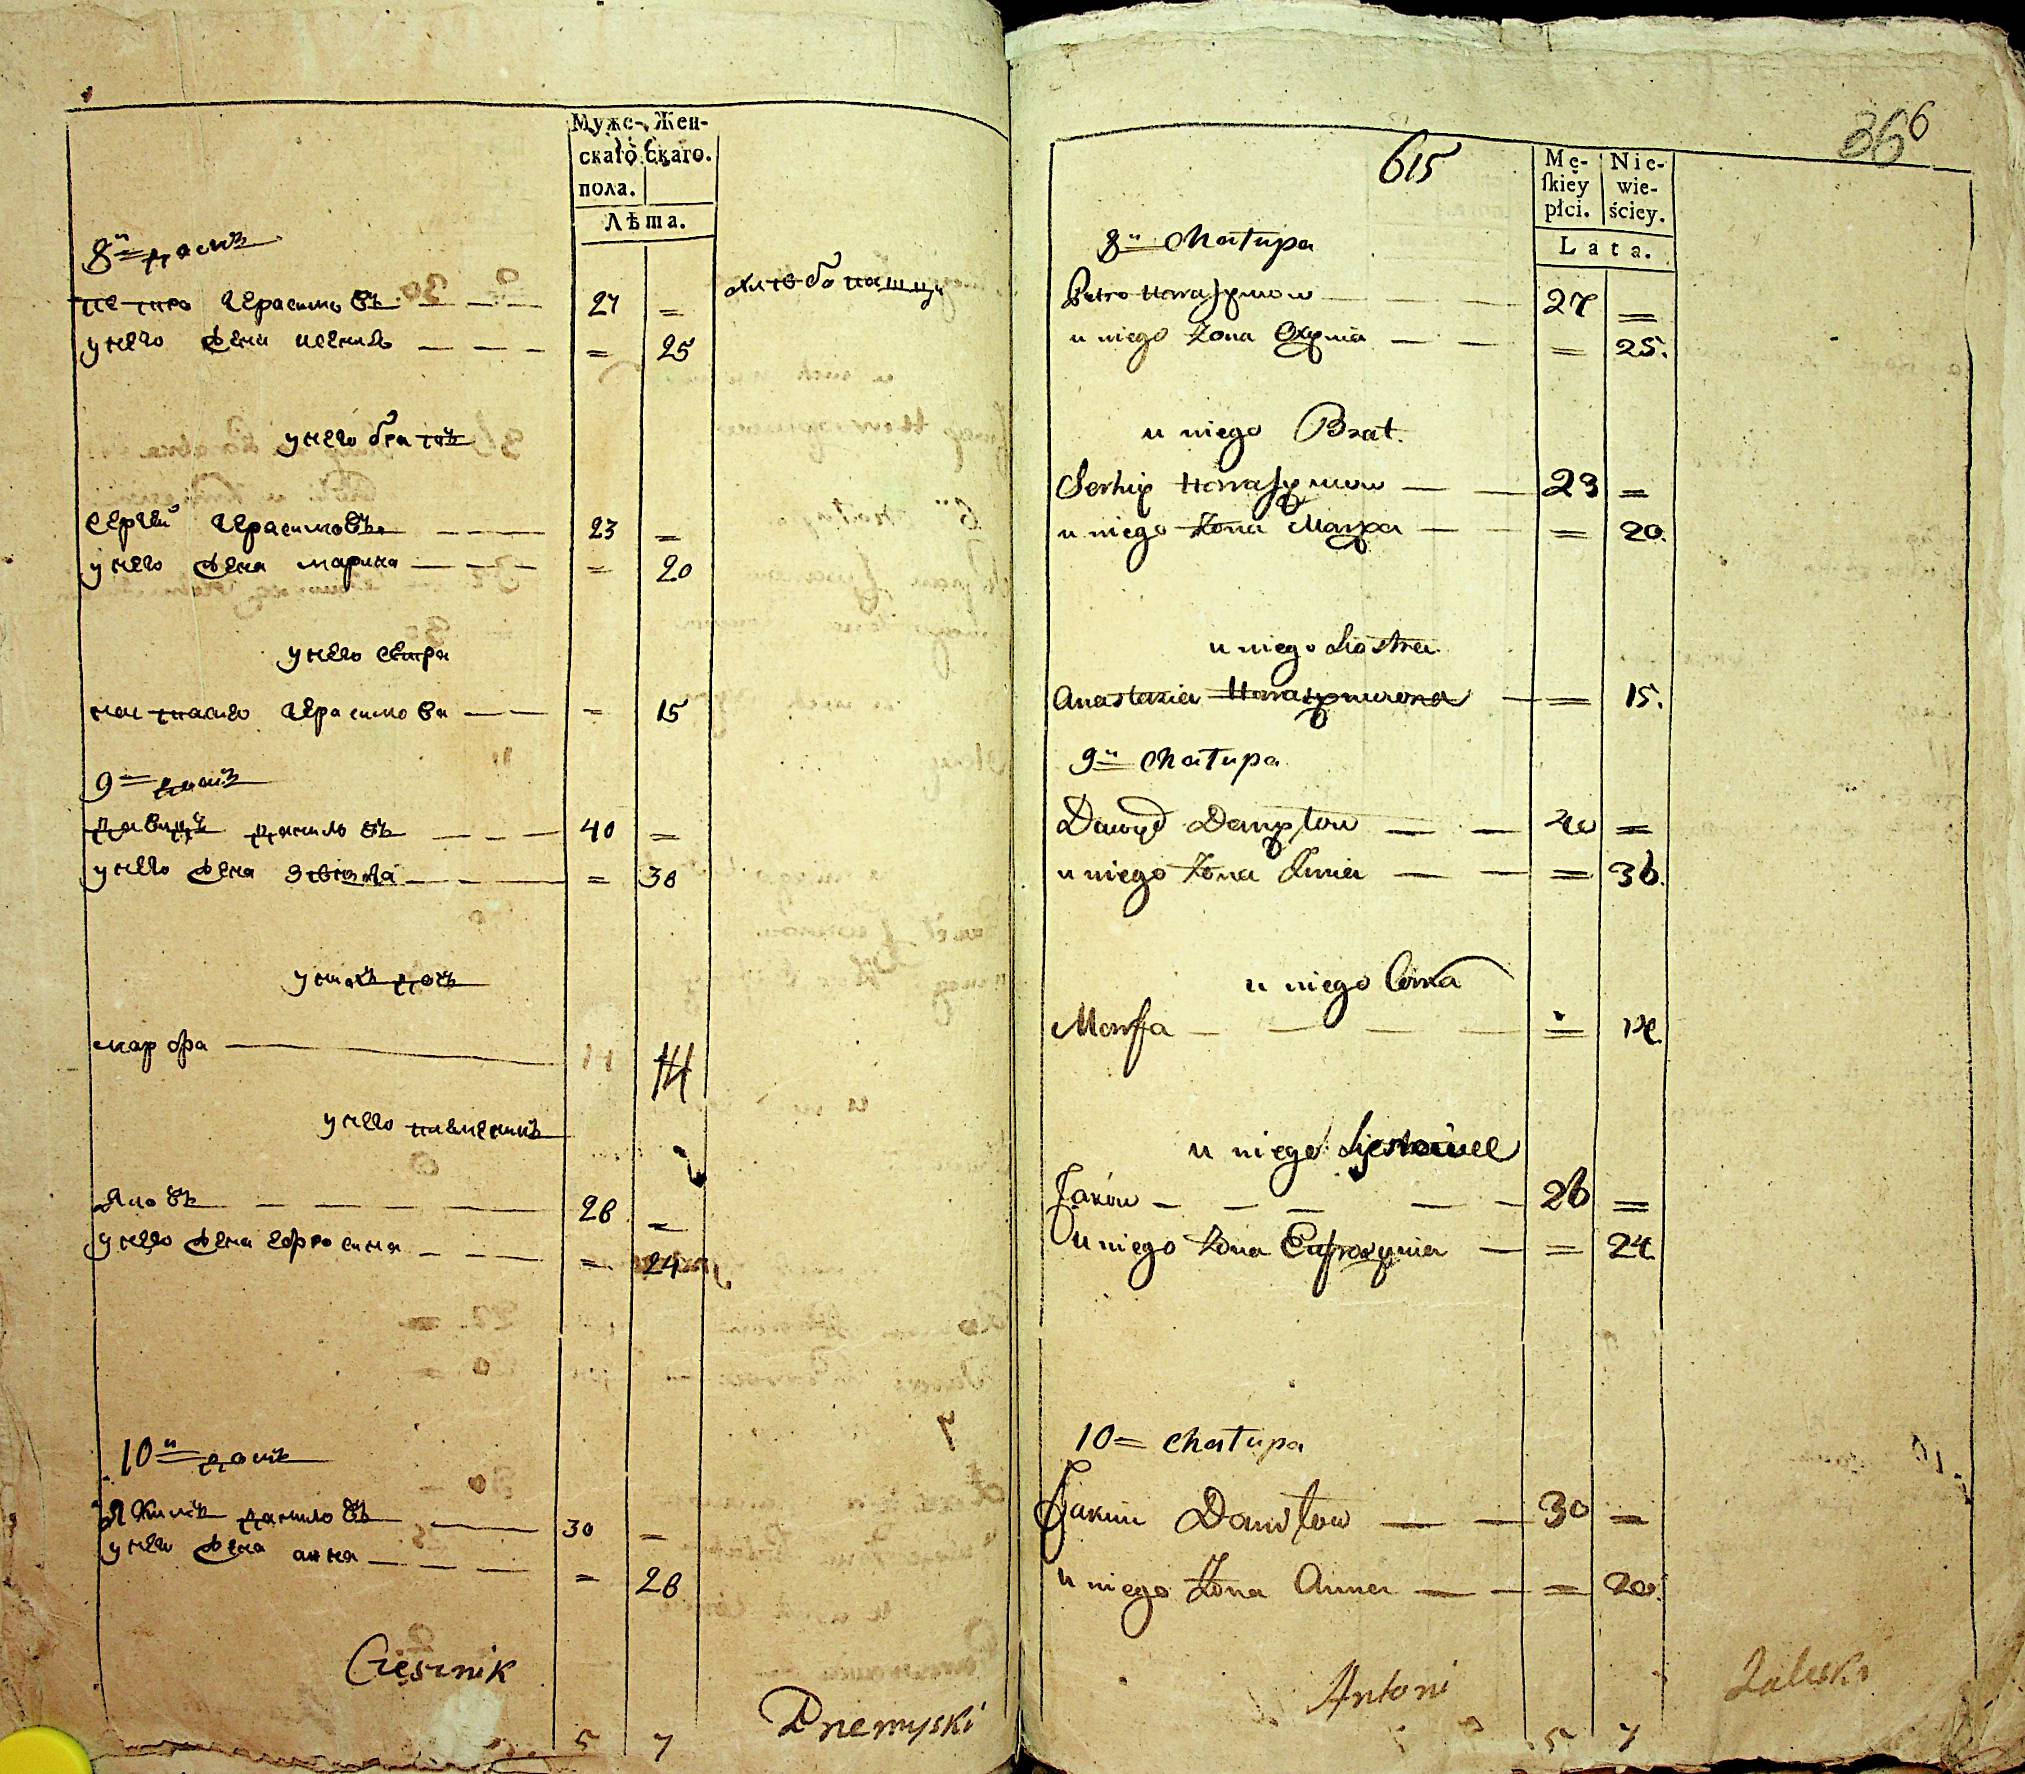 Мужс- Жен-
скаго скаго.
пола.
Лѣта.
8й домъ
петро Герасимовъ — — — 27 =
у него жена — — — = 25
у него братъ
Сергей Герасимовъ — — — 23 =
у него жена марина — — — = 20
у него сестра
настасия Герасимова — — = 15
9 домъ
давидъ даниловъ — — — 40 =
у него жена — — — = 36
у нихъ дочь
марфа — 14
у него племенникъ
Яковъ — — — — 26 =
у него жена ефросиня — — — = 24
10й домъ
Якимъ даниловъ — — 30 =
у него жена анна — — — = 26
Cześnik
Przemyski
5 7
366
615
Mę- Nie-
ſkiey wie-
płci. ściey.
Lata.
8a Chałupa
Petro Harasymow — — — 27 =
u niego Żona — — = 25.
u niego Brat.
Serhij Harasymow — — 23 =
u niego Żona Maryna — — = 20.
u niego Siostra
Anastazia Harasymowna — = 15.
9a Chałupa
Dawyd Daniłow — — 40 =
u niego Żona — — = 36.
u niego Corka
Marfa — — — — = 14.
u niego
Jakow — — — — — 26 =
u niego Żona Eufrozynia — = 24
10 = Chałupa
Jakim Daniłow — — 30 =
u niego Żona Anna — — = 26.
Antoni
Zaleski
5 7